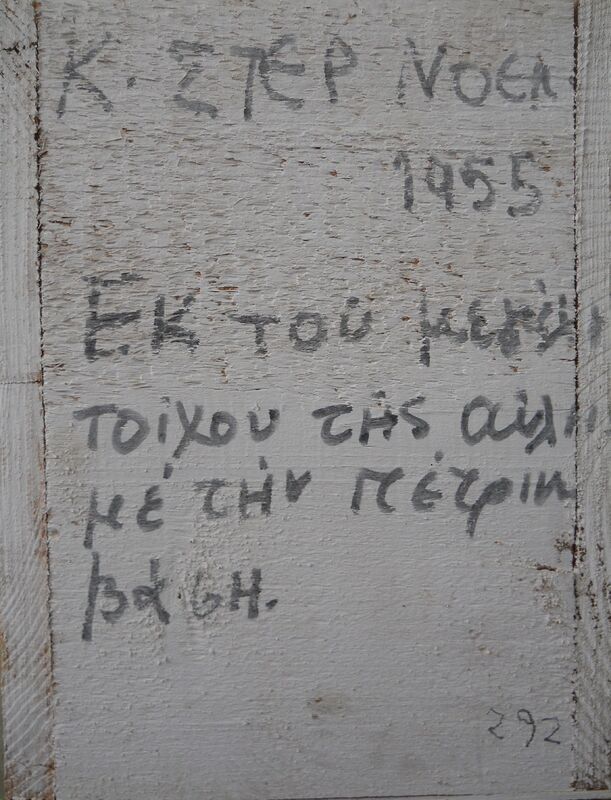 Κ. ΣΤΕΡ ΝΟΕΛ
1955
Εκ τοῦ
τοίχου τῆς αὐλῆ
μέ τήν πέτριν
βάση.
292